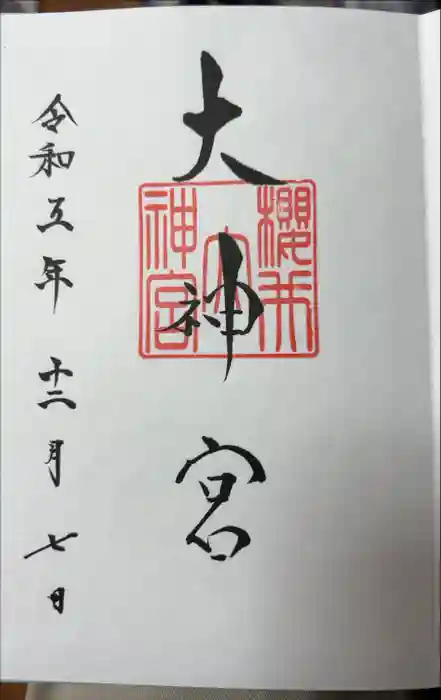 大神宮
櫻井
大
神宮
令和五年十二月七日